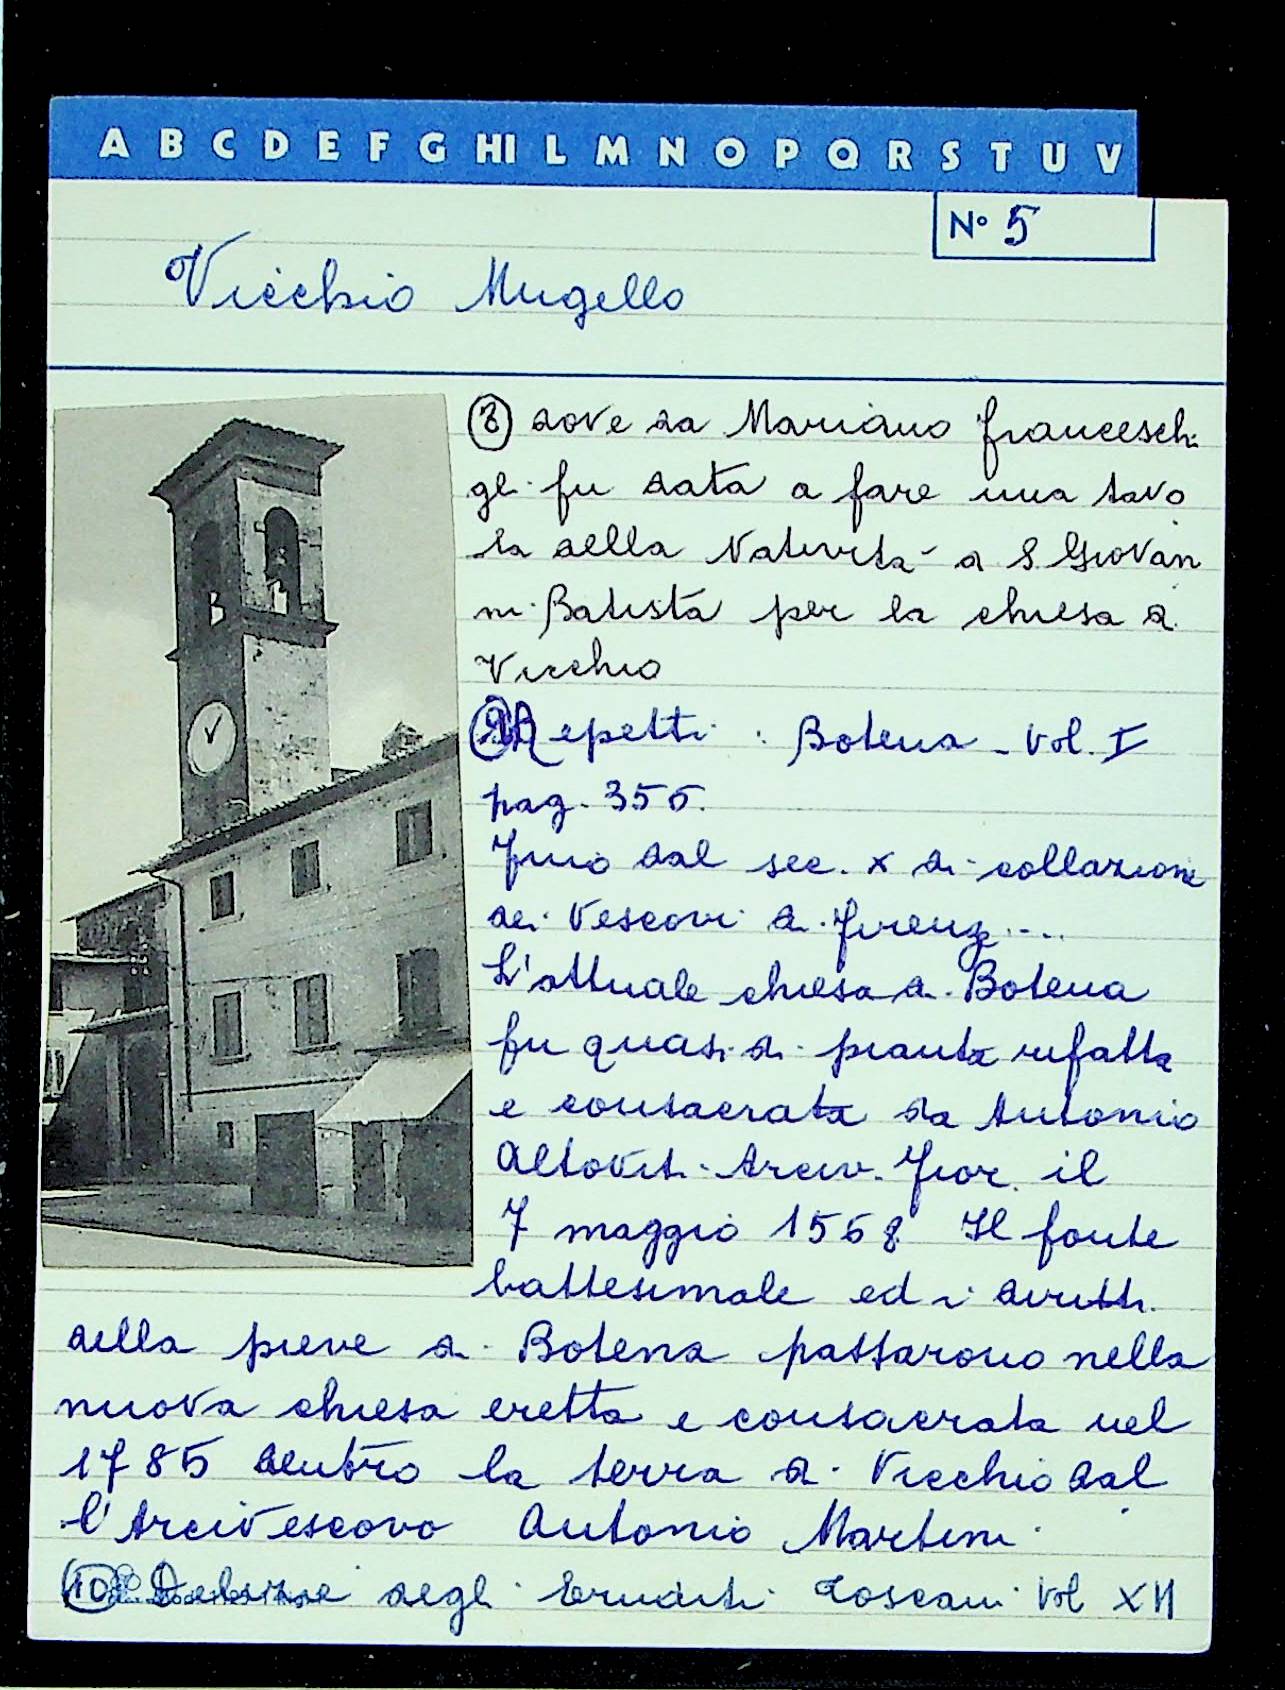 A B C D E F G HI L M N O P Q R S T U V
N° 5
Vicchio Mugello
8 dove da Mariano Franceschi
gli fu data a fare una tavo
la della Natività di S. Giovan
ni Batista per la chiesa di
Vicchio
Repetti: Botena - Vol. I
pag. 355.
Fino dal sec. X di collazione
dei Vescovi di Firenze....
L'attuale chiesa di Botena
fu quasi di pianta rifatta
e consacrata da Antonio
Altoviti Arciv. Fior. il
7 maggio 1568 Il fonte
battesimale ed i diritti
della pieve di Botena passarono nella
nuova chiesa eretta e consacrata nel
1785 dentro la terra di Vicchio dal
l'Arcivescovo Antonio Martini
10 Delizie degli Eruditi Toscani Vol XII